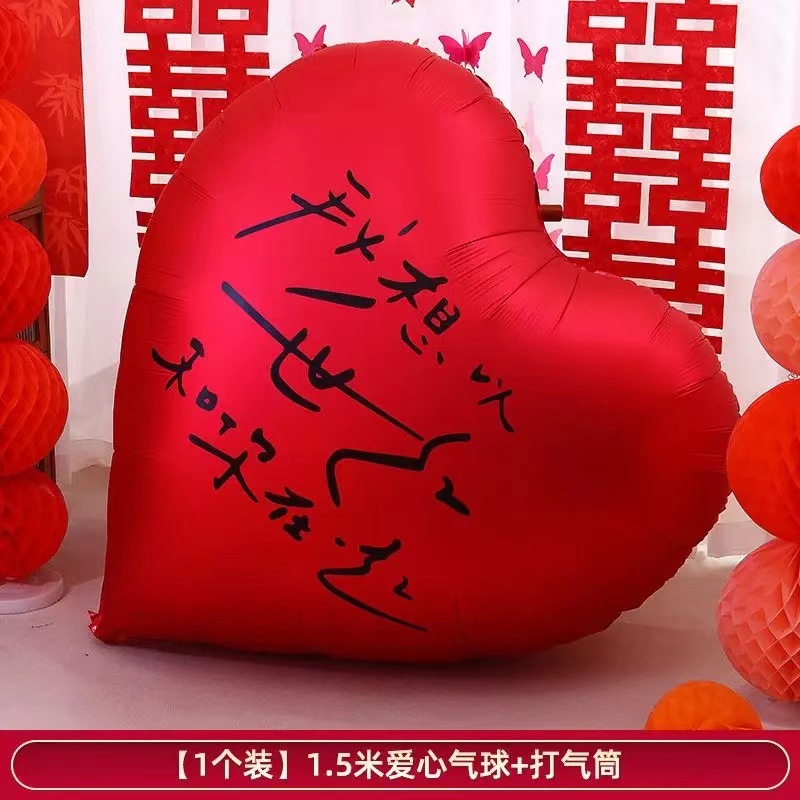 囍
囍
我想以
一世
和你在一起
【1个装】1.5米爱心气球+打气筒